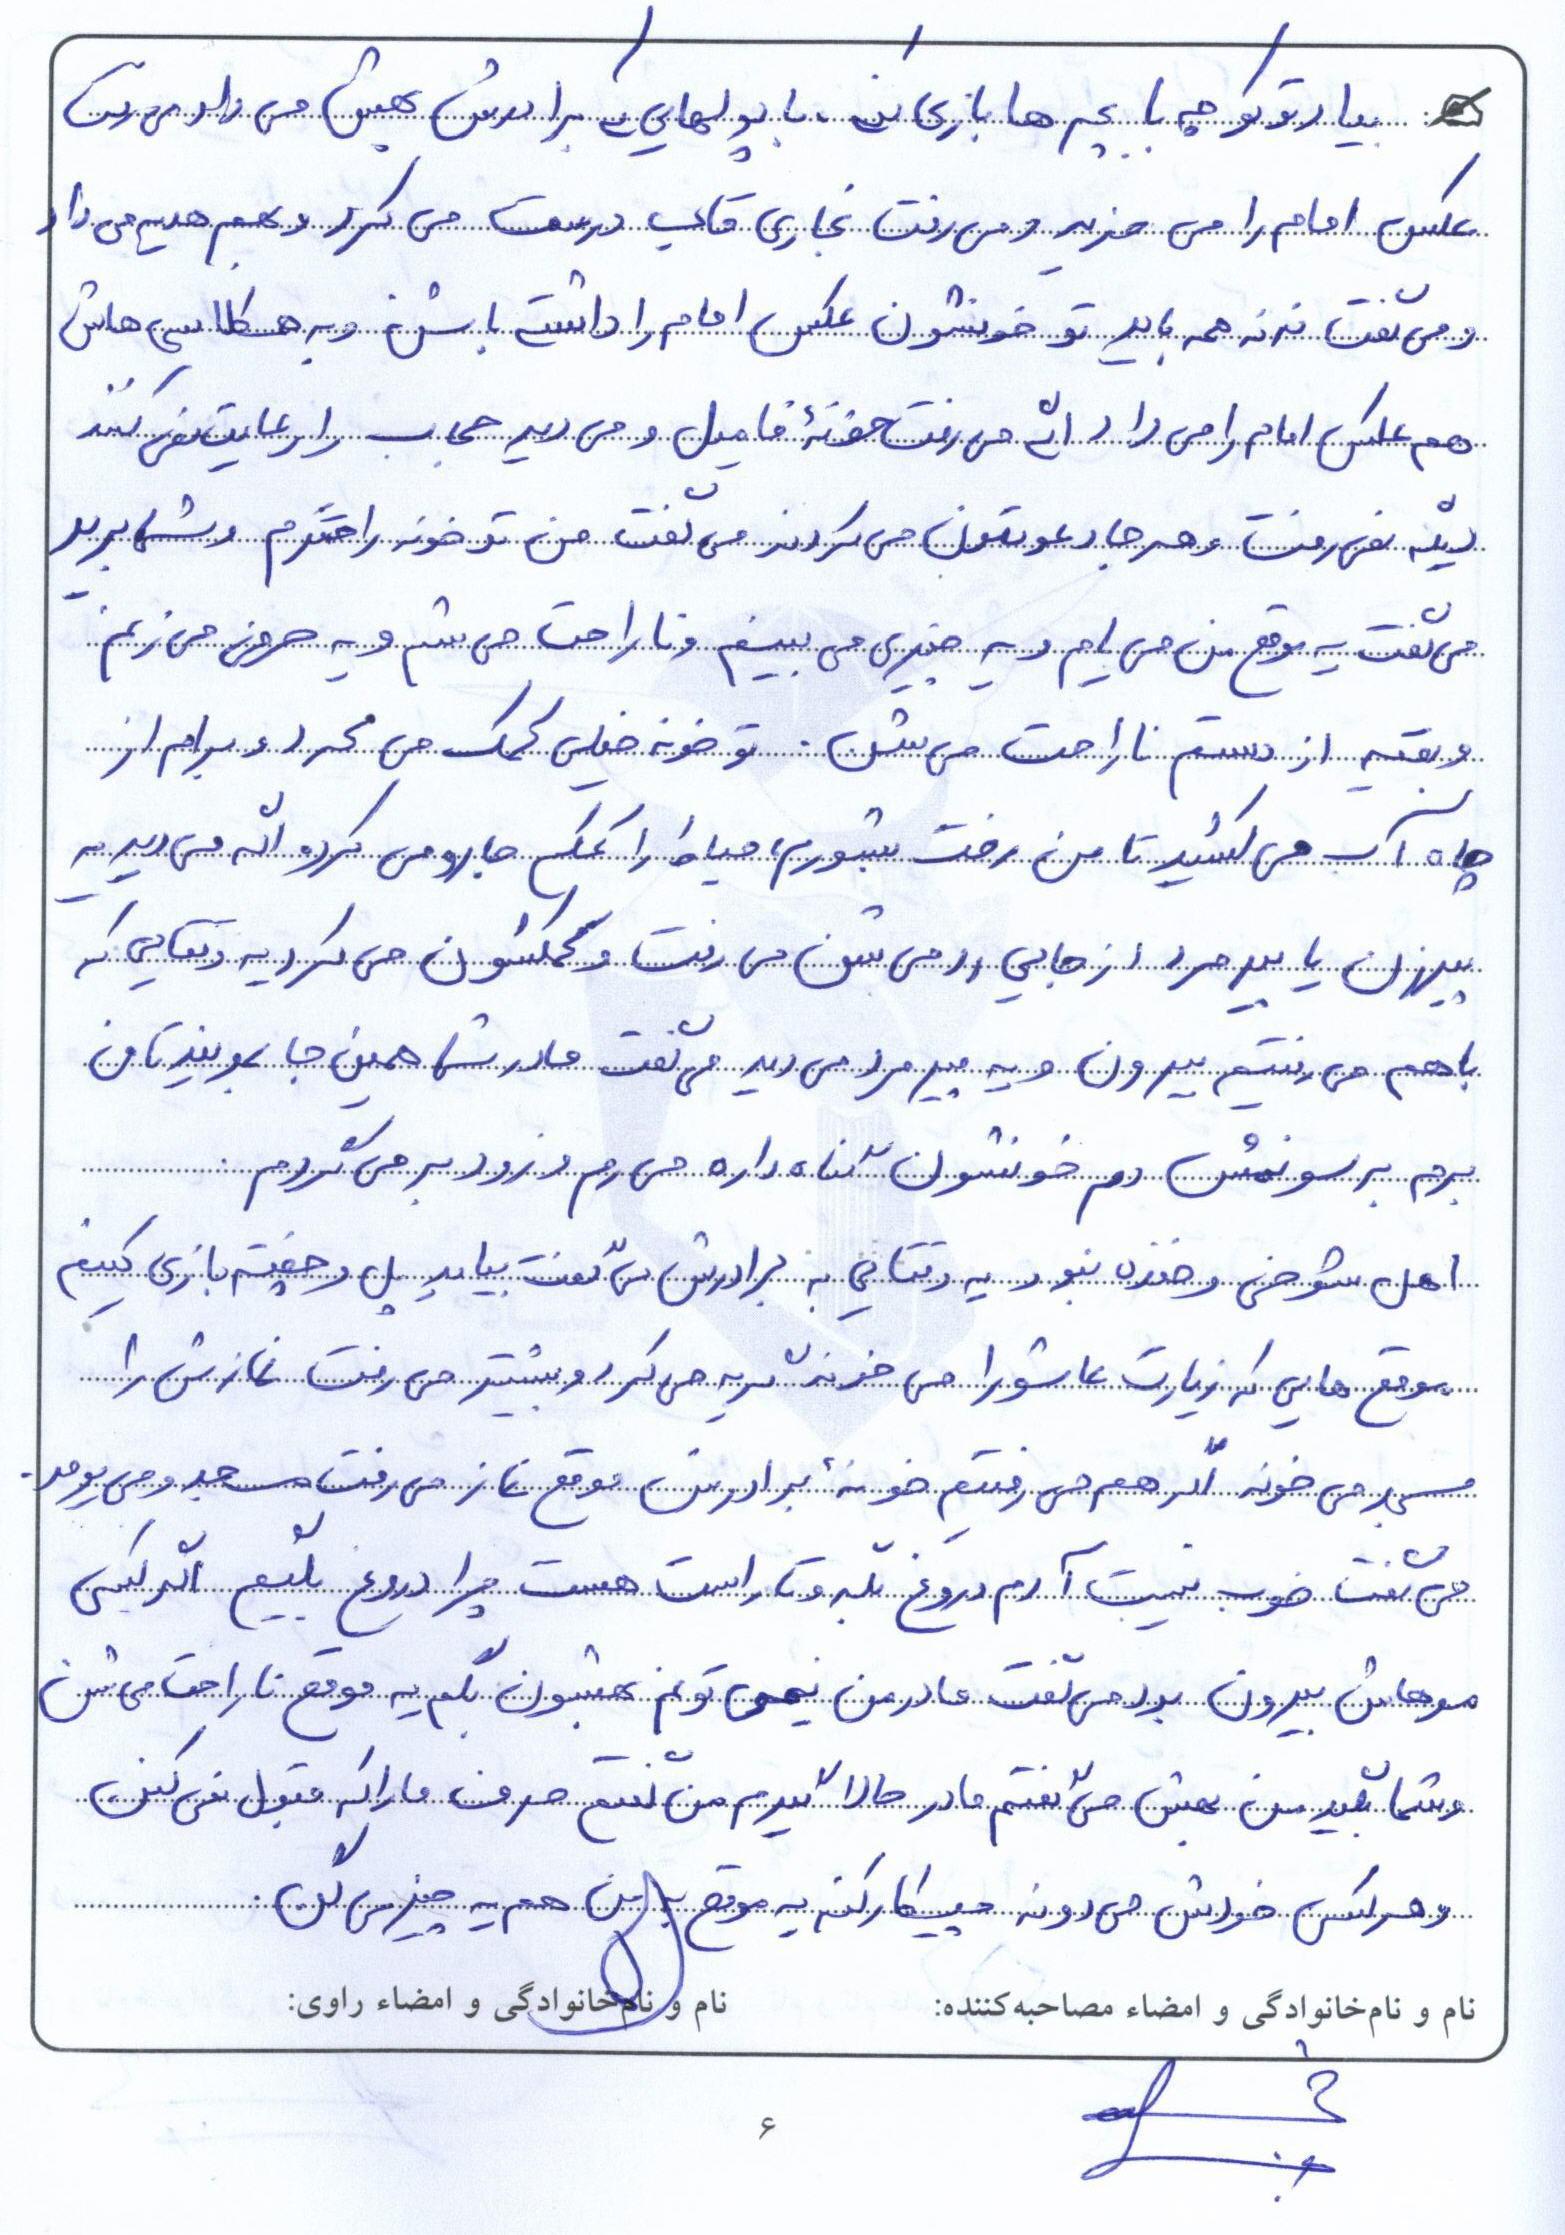 بیاد تو کوچه با بچه ها بازی کن. با پولهایی که برادرش بهش می داد می رفت
عکس امام را می خرید و می رفت نجاری قاب درست می کرد و بهم هدیه می داد
و می گفت ننه همه باید تو خونشون عکس امام را داشته باشن و به همکلاسی هاش
هم عکس امام را می داد اگه می رفت خونۀ فامیل و می دید حجاب را رعایت نمی کنند
دیگه نمی رفت و هر جا دعوتمون می کردند می گفت من تو خونه راحترم و شما برید
می گفت یه موقع من می یام و یه چیزی می بینم و ناراحت می شم و یه حرفی می زنم
و بقیه از دستم ناراحت می شن. تو خونه خیلی کمک می کرد و برام از
چاه آب می کشید تا من رخت بشورم، حیاط را کمکم جارو می کرد و اگه می دید یه
پیرزن یا پیرمرد از جایی رد می شن می رفت و کمکشون می کرد یه وقتایی که
با هم می رفتیم بیرون و یه پیرمرد می دید می گفت مادر شما همین جا بمونید تا من
برم برسونمش دم خونشون گناه داره می رم و زود بر می گردم.
اهل شوخی و خنده نبود یه وقتایی به برادرش می گفت بیاید پل و چفته بازی کنیم
موقع هایی که زیارت عاشورا می خوند گریه می کرد و بیشتر می رفت نمازش را
مسجد می خوند اگر هم می رفتیم خونۀ برادر من موقع نماز می رفت مسجد و می یومد.
می گفت خوب نیست آدم دروغ بگه و تا راست هست چرا دروغ بگیم اگر کسی
موهاش بیرون بود می گفت مادر من نمی تونم بهشون بگم یه موقع ناراحت می شن
و شما بگید من بهش می گفتم مادر حالا گیرم من گفتم حرف ما را که قبول نمی کنن
و هر کس خودش می دونه چیکار کنه یه موقع به من هم یه چیز می گن.
نام و نام‌خانوادگی و امضاء مصاحبه‌کننده:
نام و نام‌خانوادگی و امضاء راوی:
۶